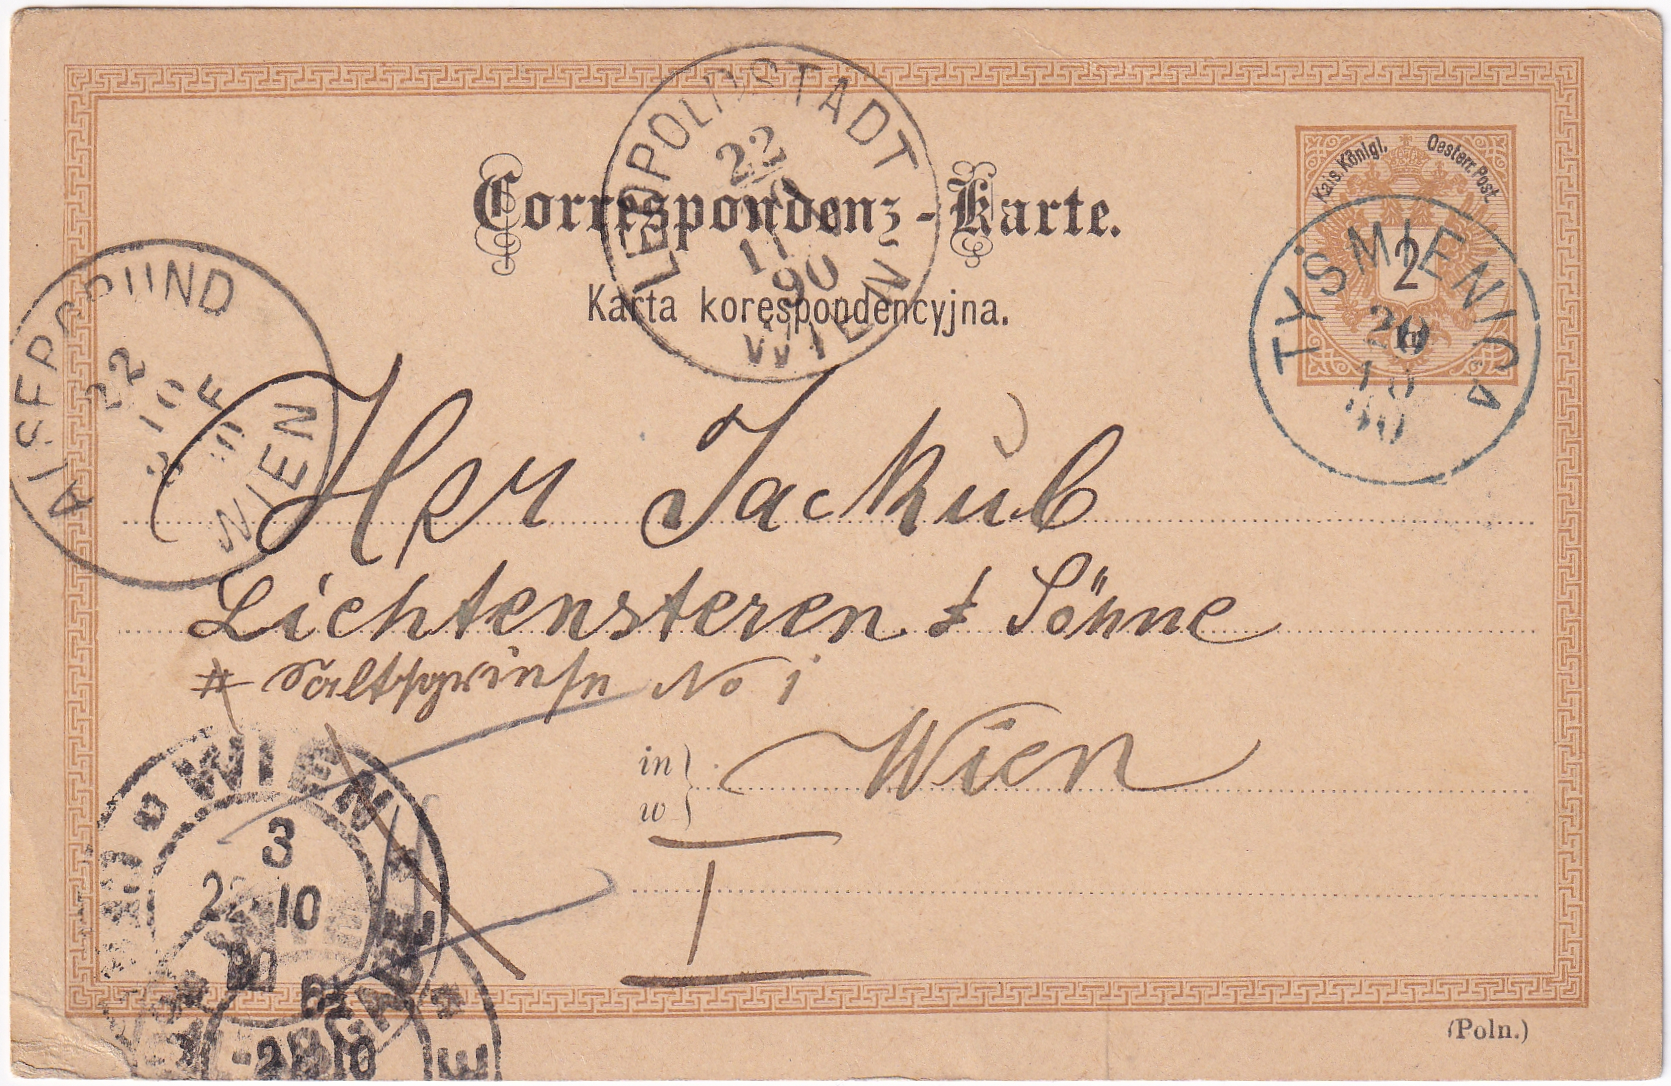 Correspondenz-Karte.
Karta korespondencyjna.
Kais. Königl. Oesterr. Post
2
kr
TYŚMIENICA
20
10
90
LEOPOLDSTADT
22
10
11
90
WIEN
ALSERGRUND
22
10
WIEN
Her Jackub
Lichtensteren & Söhne
No 1
in
w
Wien
I
WIEN
3
22 10
90
10
(Poln.)